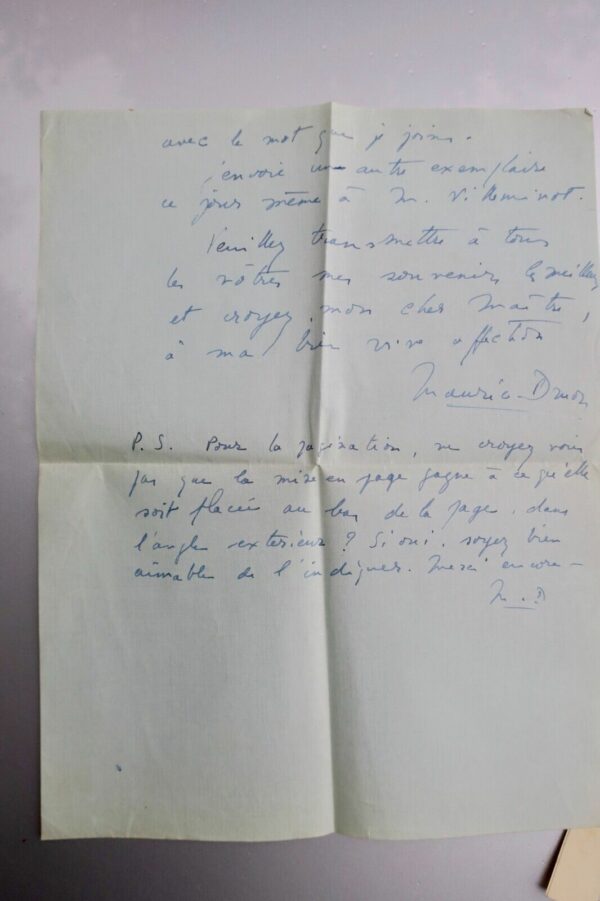 avec le mot que je joins.
j'envoie un autre exemplaire
ce jour même à M. Villeminot.
Veuillez transmettre à tous
les vôtres mes souvenirs les meilleurs
et croyez, mon cher Maître,
à ma bien vive affection
Maurice Druon
P.S. Pour la pagination, ne croyez vous
pas que la mise en page gagne à ce qu'elle
soit placée au bas de la page, dans
l'angle extérieur ? Si oui, soyez bien
aimable de l'indiquer. Merci encore –
M.D